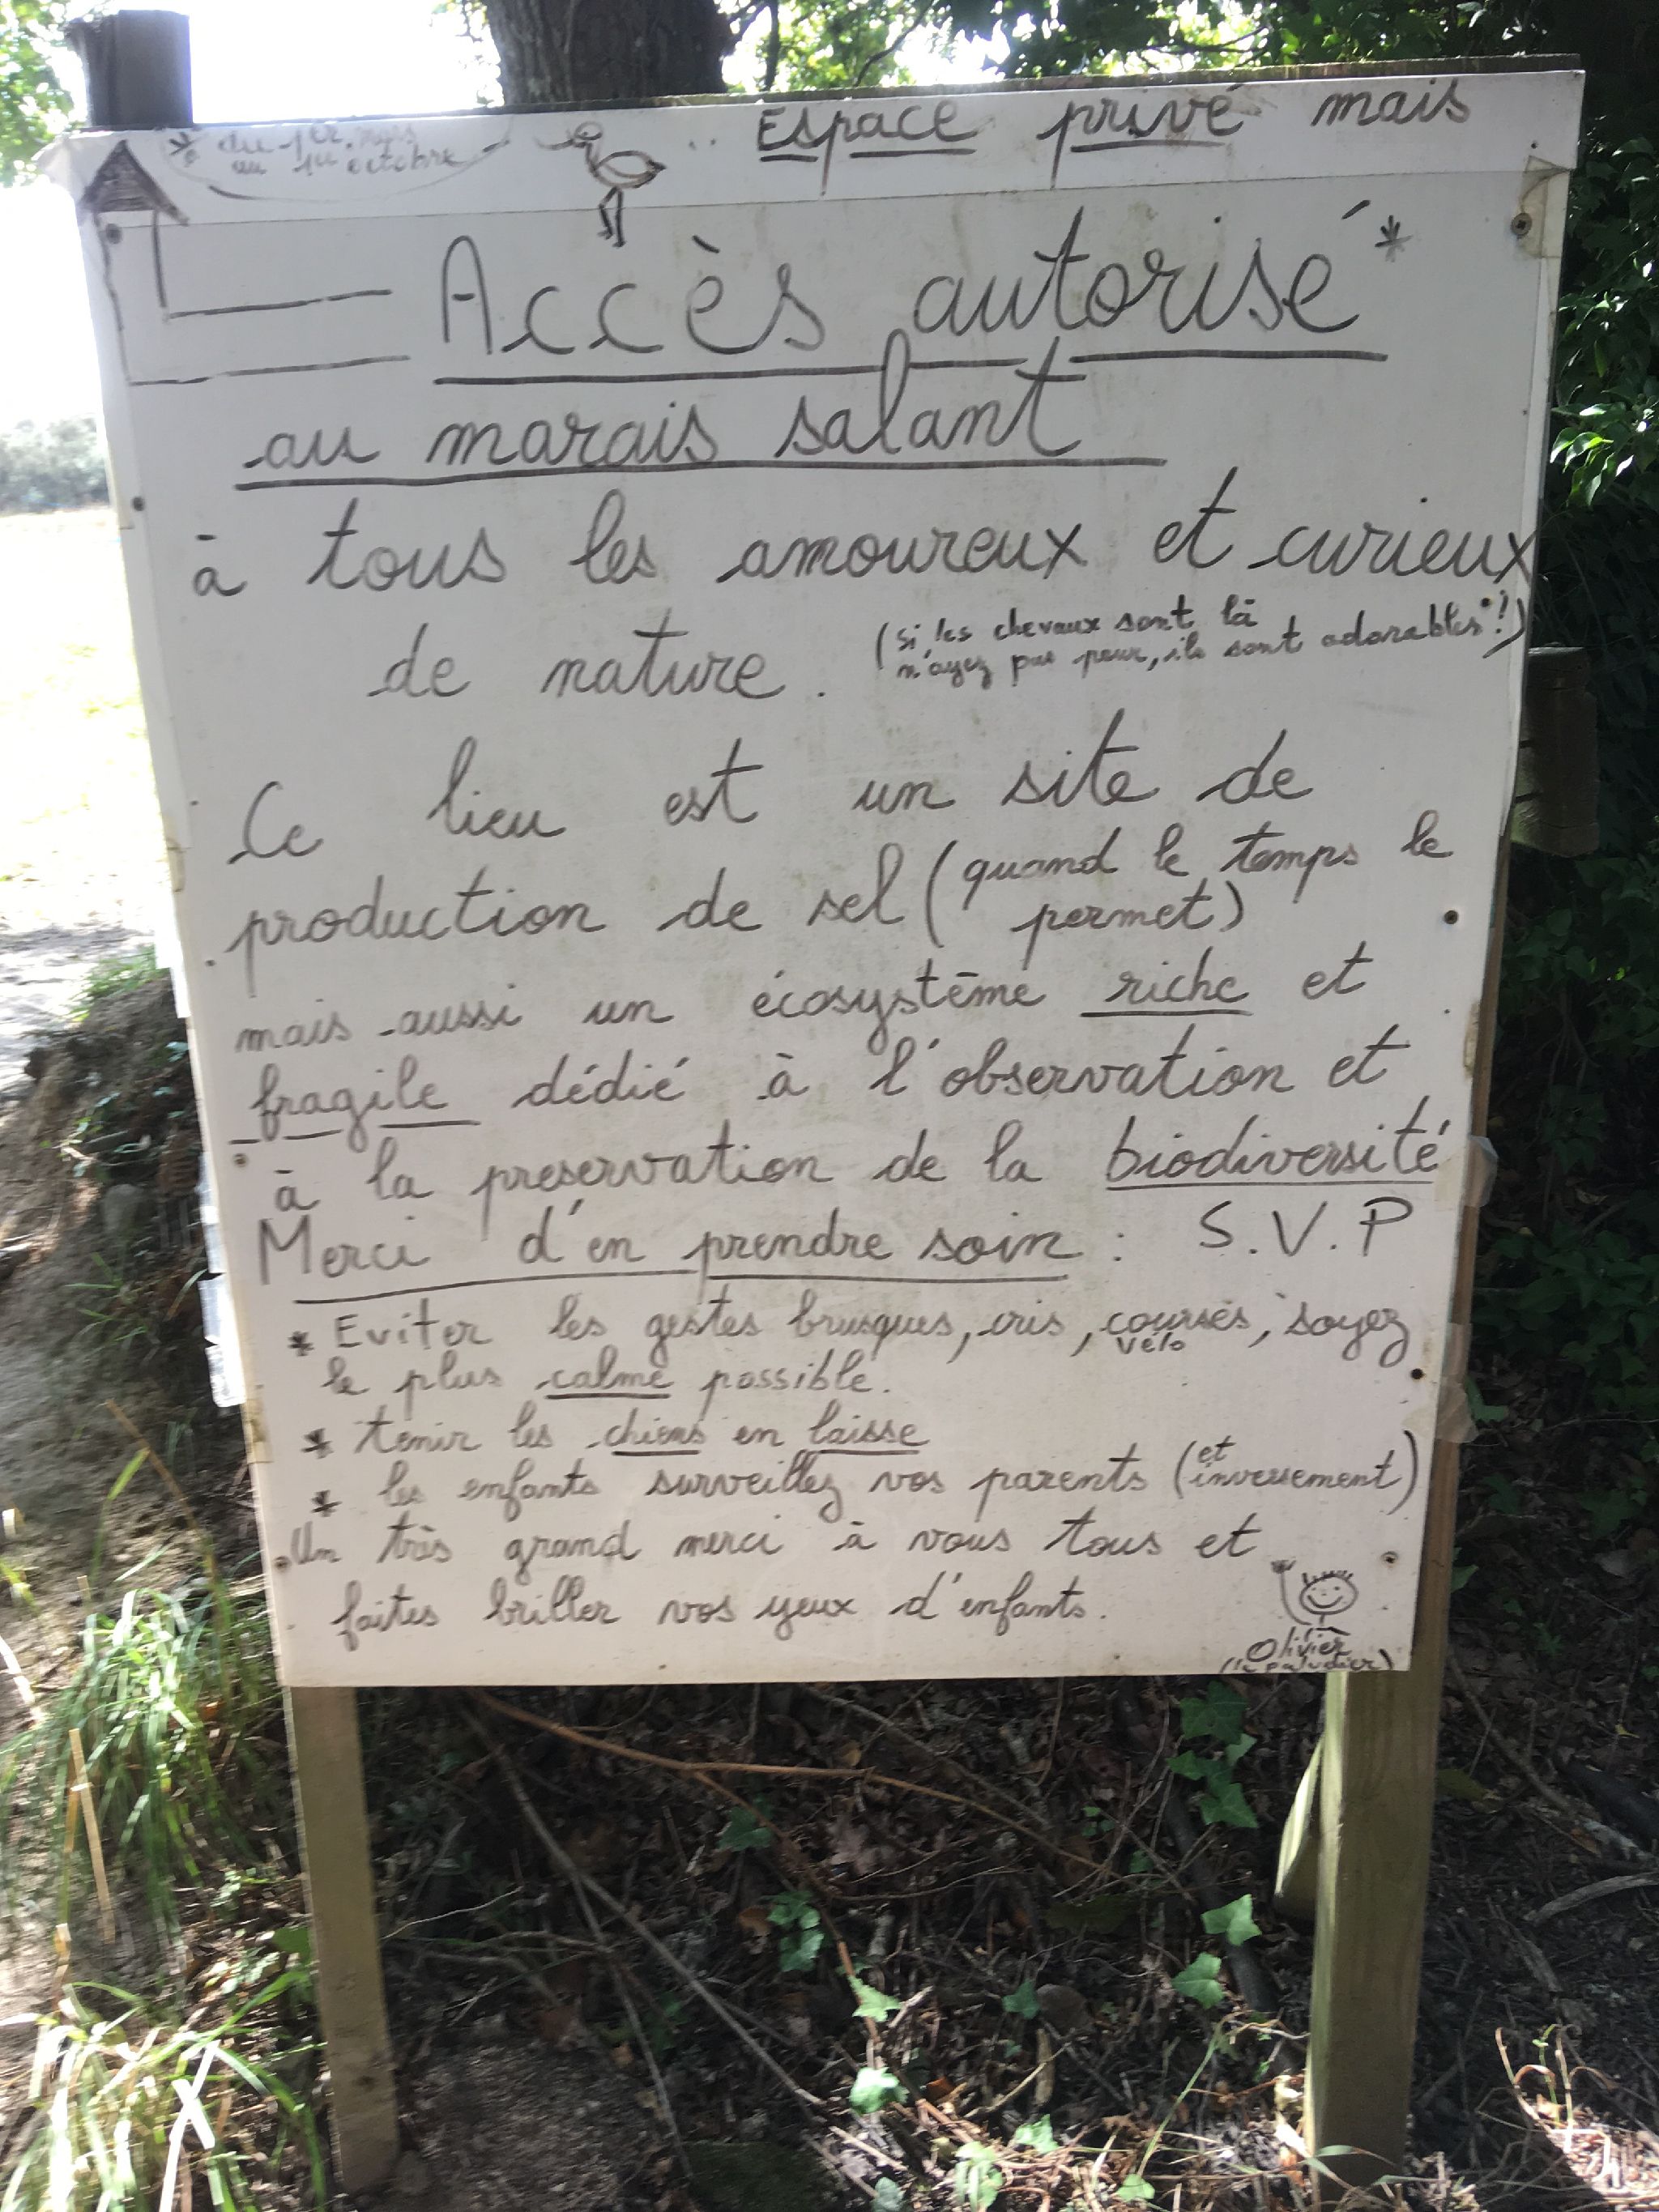 * du 1er mars
au 1er octobre
.. Espace privé mais
Accès autorisé*
au marais salant
à tous les amoureux et curieux
de nature.
(si les chevaux sont là
n'ayez pas peur, ils sont adorables!)
Ce lieu est un site de
production de sel (quand le temps le
permet)
mais aussi un écosystème riche et
fragile dédié à l'observation et
à la preservation de la biodiversité
Merci d'en prendre soin : S.V.P
* Eviter les gestes brusques, cris, courses, soyez
vélo
le plus calme possible.
* tenir les chiens en laisse
* les enfants surveillez vos parents (et
inversement)
Un très grand merci à vous tous et
faites briller vos yeux d'enfants.
Olivier
(le paludier)